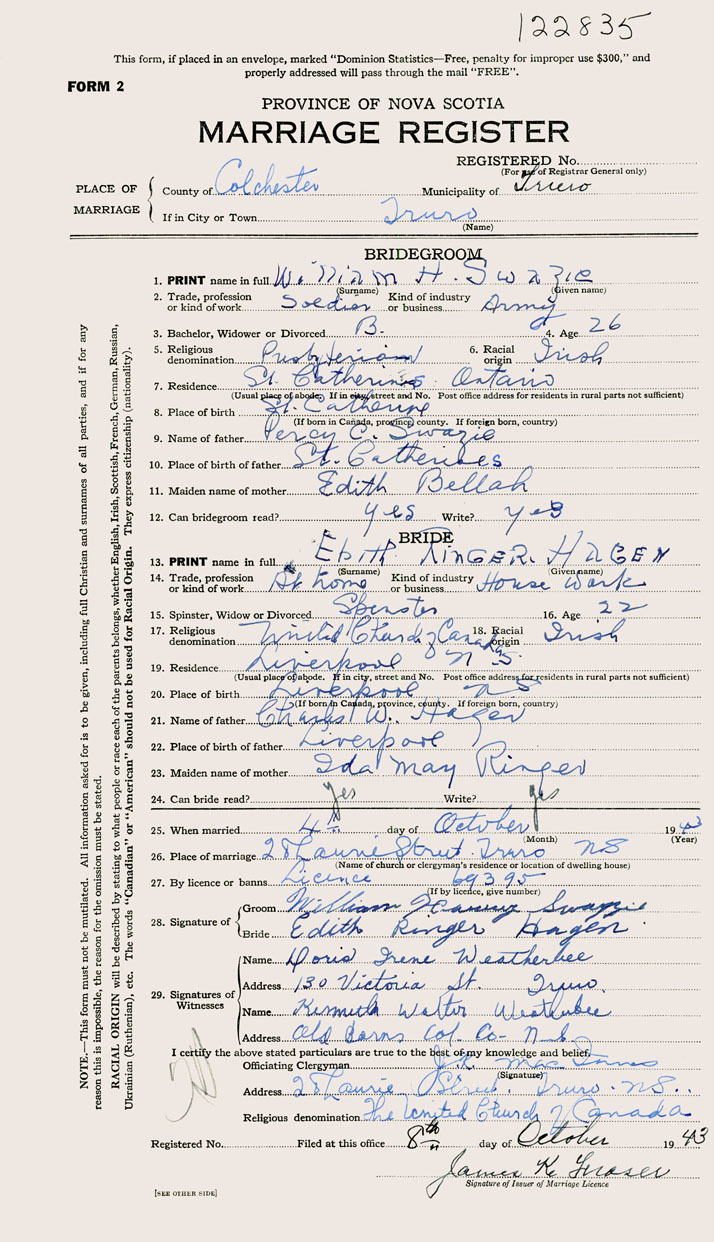 122835
This form, if placed in an envelope, marked "Dominion Statistics—Free, penalty for improper use $300," and
properly addressed will pass through the mail "FREE".
FORM 2
PROVINCE OF NOVA SCOTIA
MARRIAGE REGISTER
REGISTERED No.
(For use of Registrar General only)
PLACE OF MARRIAGE
County of Colchester Municipality of Truro
If in City or Town Truro
(Name)
BRIDEGROOM
1. PRINT name in full William H. Swazie
(Surname) (Given name)
2. Trade, profession or kind of work Soldier Kind of industry or business Army
3. Bachelor, Widower or Divorced B. 4. Age 26
5. Religious denomination Presbyterian 6. Racial origin Irish
7. Residence St. Catherines Ontario
(Usual place of abode. If in city, street and No. Post office address for residents in rural parts not sufficient)
8. Place of birth St. Catherine
(If born in Canada, province, county. If foreign born, country)
9. Name of father Percy C. Swazie
10. Place of birth of father St. Catherines
11. Maiden name of mother Edith Bellah
12. Can bridegroom read? yes Write? yes
BRIDE
13. PRINT name in full EDITH RINGER HAGEN
(Surname) (Given name)
14. Trade, profession or kind of work At home Kind of industry or business House work
15. Spinster, Widow or Divorced Spinster 16. Age 22
17. Religious denomination United Church of Canada 18. Racial origin Irish
19. Residence Liverpool N S.
(Usual place of abode. If in city, street and No. Post office address for residents in rural parts not sufficient)
20. Place of birth Liverpool NS
(If born in Canada, province, county. If foreign born, country)
21. Name of father Charles W. Hagen
22. Place of birth of father Liverpool
23. Maiden name of mother Ida May Ringer
24. Can bride read? yes Write? yes
25. When married 4th day of October 1943
(Month) (Year)
26. Place of marriage 28 Laurie Street Truro NS
(Name of church or clergyman's residence or location of dwelling house)
27. By licence or banns Licence 69395
(If by licence, give number)
28. Signature of
Groom William Swazie
Bride Edith Ringer Hagen
29. Signatures of Witnesses
Name Doris Irene Weatherbee
Address 130 Victoria St. Truro.
Name Kenneth Walter Weatherbee
Address Old Barns Col. Co- N.S.
I certify the above stated particulars are true to the best of my knowledge and belief.
Officiating Clergyman
(Signature)
Address 28 Laurie Street. Truro. NS.
Religious denomination The United Church of Canada
Registered No. Filed at this office 8th day of October 1943
James K. Fraser
Signature of Issuer of Marriage Licence
[SEE OTHER SIDE]
NOTE.—This form must not be mutilated. All information asked for is to be given, including full Christian and surnames of all parties, and if for any
reason this is impossible, the reason for the omission must be stated.
RACIAL ORIGIN will be described by stating to what people or race each of the parents belongs, whether English, Irish, Scottish, French, German, Russian,
Ukrainian (Ruthenian), etc. The words "Canadian" or "American" should not be used for Racial Origin. They express citizenship (nationality).